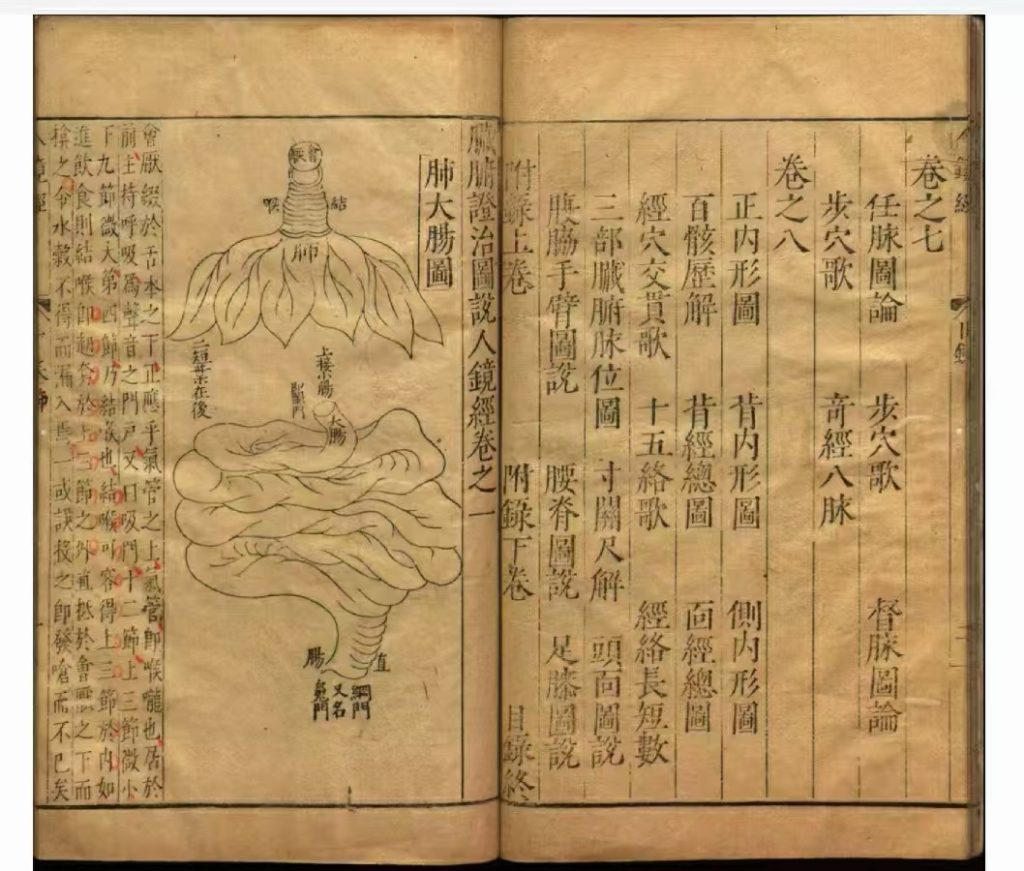 人鏡經
目錄
卷之七
任脉圖論 步穴歌 督脉圖論
步穴歌 奇經八脉
卷之八
正内形圖 背内形圖 側内形圖
百骸歷解 背經總圖 面經總圖
經穴交貫歌 十五絡歌 經絡長短數
三部臟腑脉位圖 寸關尺解 頭面圖說
脇手臂圖說 腰脊圖說 足膝圖說
附錄上卷 附錄下卷 目錄終
臟腑證治圖說人鏡經卷之一
肺大腸圖
會厭
結喉
肺
二短葉在後
上接小腸
即闌門
大腸
直腸
門
又名
魄門
會厭綴於舌本之下正應乎氣管之上氣管即喉嚨也居於
前主持呼吸爲聲音之門戶又曰吸門十二節上三節微小
下九節微大第四節乃結喉也結喉可容得上三節於内如
進飲食則結喉即超奔於上三節之外直抵於會厭之下而
揜之令水穀不得而漏入焉一或誤投之即發嗆而不已矣